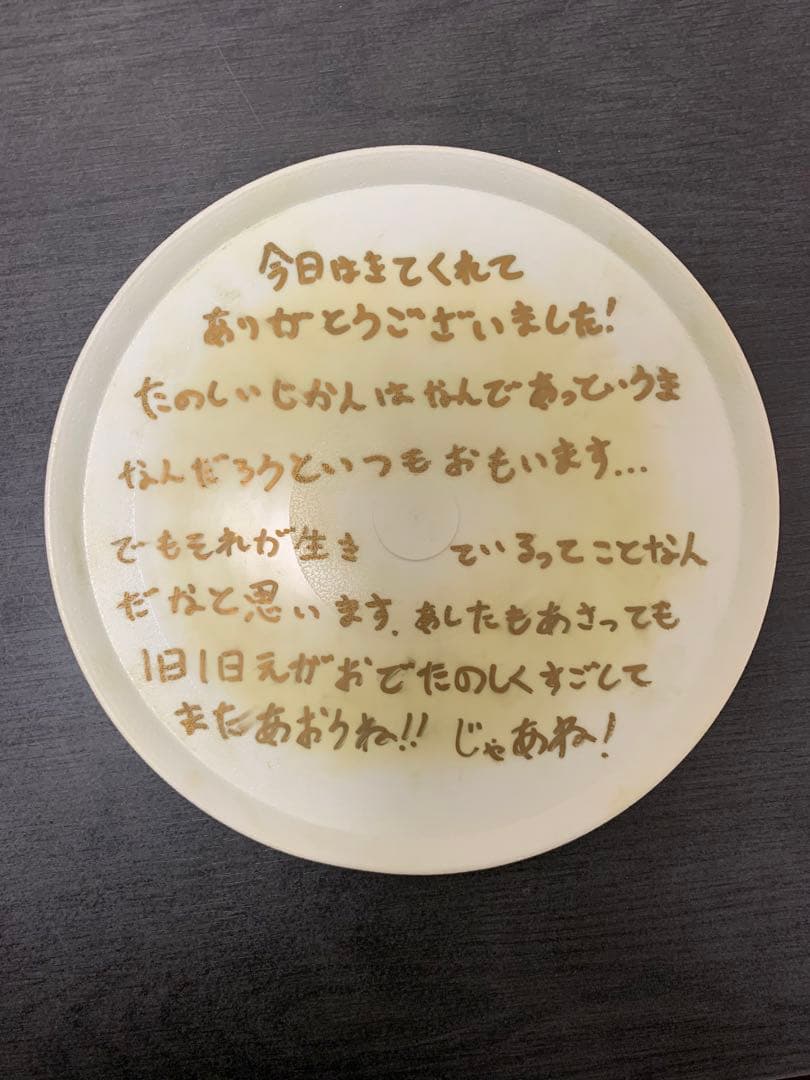 今日はきてくれて
ありがとうございました!
たのしいじかんはなんであっというま
なんだろうといつもおもいます...
でもそれが生き ているってことなん
だなと思います.あしたもあさっても
1日1日えがおでたのしくすごして
またあおうね!! じゃあね!